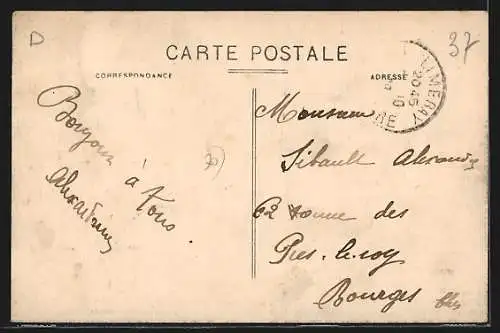 D
37
CARTE POSTALE
CORRESPONDANCE
ADRESSE
LIMERAY
20 45
10
RE
Bonjour
à tous
Monsieur
Sibault Alexandre
62 avenue des
Prés-le-roy
Bourges